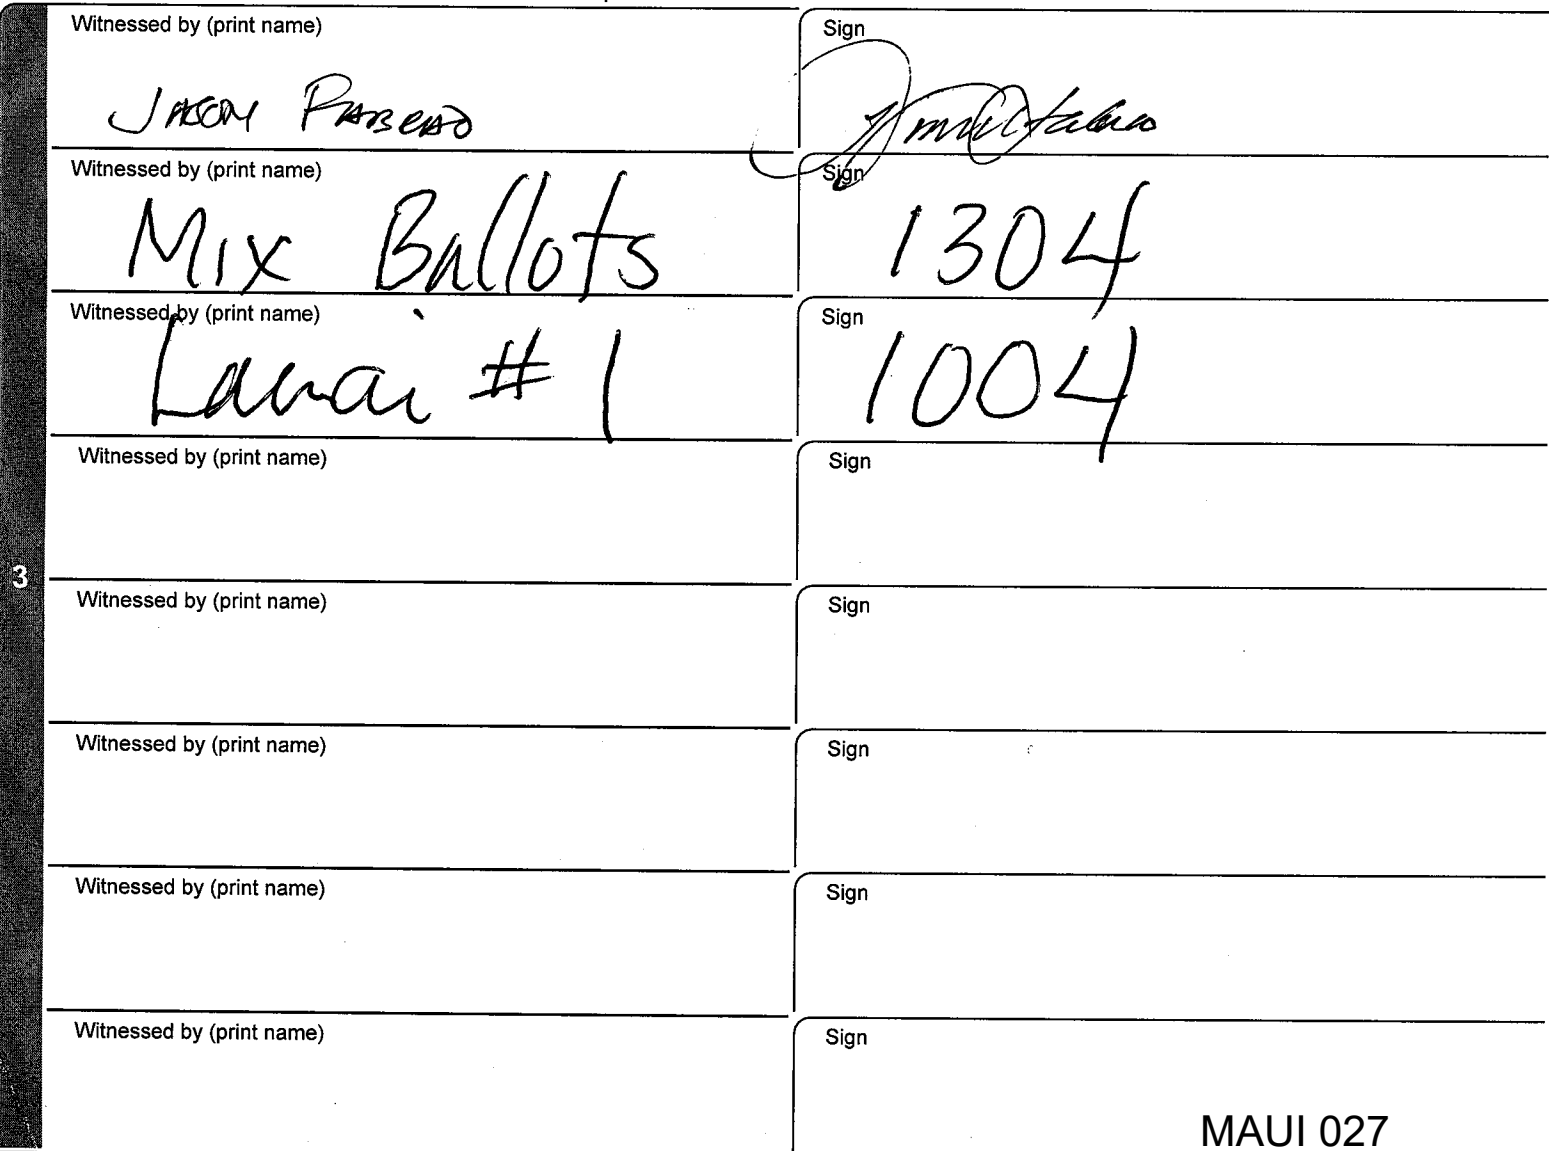 Witnessed by (print name) Sign
JASON
Witnessed by (print name) Sign
Mix Ballots 1304
Witnessed by (print name) Sign
Lanai # 1 1004
Witnessed by (print name) Sign
3
Witnessed by (print name) Sign
Witnessed by (print name) Sign
Witnessed by (print name) Sign
Witnessed by (print name) Sign
MAUI 027